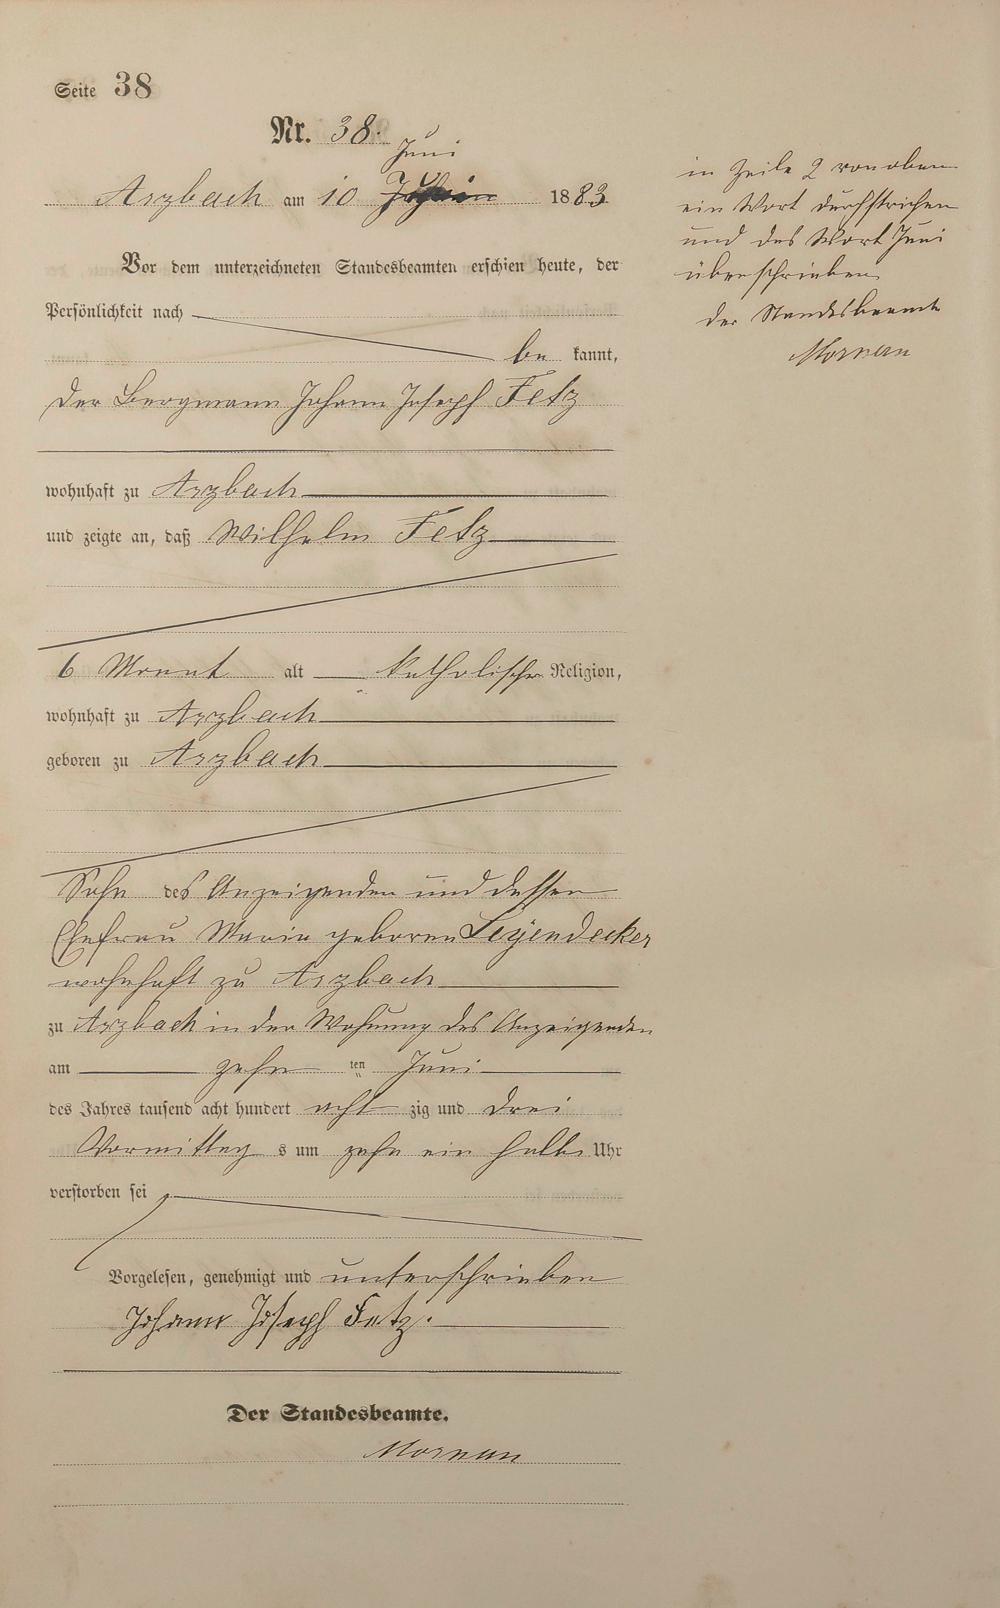 Seite 38
Nr. 38.
Juni
Arzbach am 10 1883
Vor dem unterzeichneten Standesbeamten erschien heute, der
Persönlichkeit nach
be kannt,
der Bergmann Johann Joseph Fetz
wohnhaft zu Arzbach
und zeigte an, daß Wilhelm Fetz
6 Monat alt katholischer Religion,
wohnhaft zu Arzbach
geboren zu Arzbach
Sohn des Anzeigenden und dessen
Ehefrau Maria geboren Leyendecker
wohnhaft zu Arzbach
zu Arzbach in der Wohnung des Anzeigenden
am zehn ten Juni
des Jahres tausend acht hundert acht zig und drei
Vormittag s um zehn ein halb Uhr
verstorben sei
Vorgelesen, genehmigt und unterschrieben
Johann Joseph Fetz.
Der Standesbeamte.
Mornan
in Zeile 2 von oben
ein Wort durchstrichen
und das Wort Juni
überschrieben
der Standesbeamte
Mornan